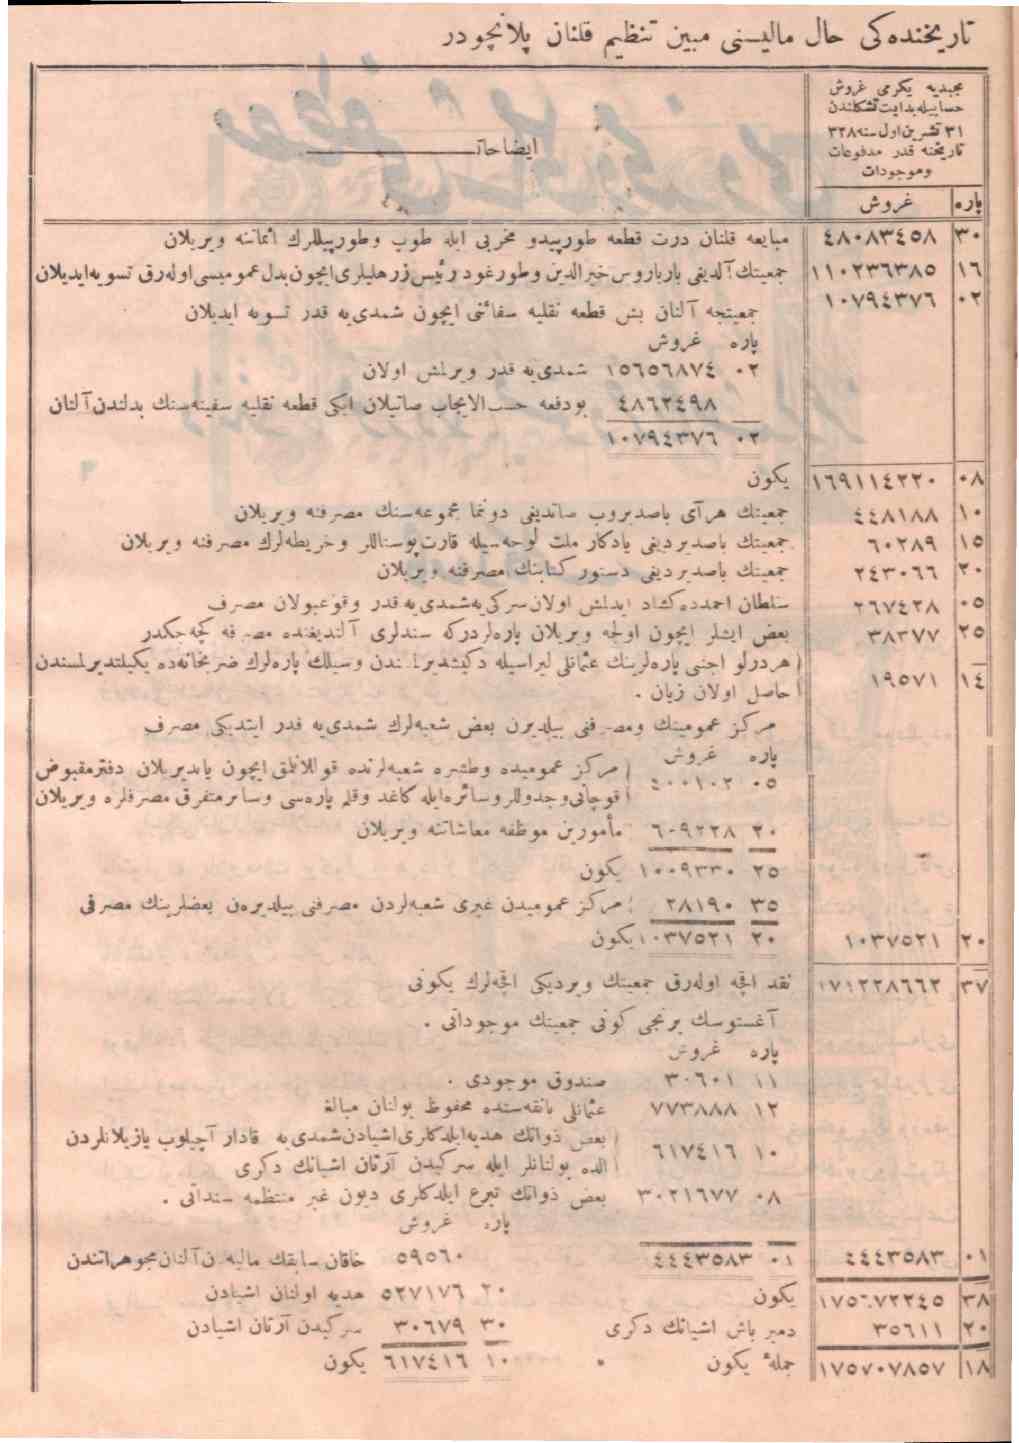 تاریخنده‌کی حال مالیسنی مبین تنظیم قلنان پلانچودر
مجیدیه یكرمی غروش
حسابیله بدایت تشكلندن
٣١ تشرین اول سنه ٣٢٨
تاریخنه قدر مدفوعات
وموجودات
ایضاحات
پاره غروش
٣٠ ٤٨٠٨٣٤٥٨ مبایعه قلنان درت قطعه طورپیدو مخربی ایله طوب وطورپیللرك اثماننه ویریلان
١٦ ١١٠٢٣٦٣٨٥ جمعیتك آلدیغی بارباروس خیرالدین وطورغود رئیس زرهلیلری ایچون بدل عمومیسی اوله‌رق تسویه ایدیلان
٠٢ ١٠٧٩٤٣٧٦ جمعیتجه آلنان بش قطعه نقلیه سفائنی ایچون شمدی‌یه قدر تسویه ایدیلان
پاره غروش
٠٢ ١٥٦٥٦٨٧٤ شمدی‌یه قدر ویرلمش اولان
٤٨٦٢٤٩٨ بودفعه حسب الایجاب صاتیلان ایكی قطعه نقلیه سفینه‌سنك بدلندن آلنان
٠٢ ١٠٧٩٤٣٧٦
٠٨ ١٦٩١١٤٢٢٠ یكون
١٠ ٤٤٨١٨٨ جمعیتك هر آی باصدیروب صاتدیغی دونما مجموعه‌سنك مصرفنه ویریلان
١٥ ٦٠٢٨٩ جمعیتك باصدیردیغی یادكار ملت لوحه‌سیله قارت پوستاللر وخریطه‌لرك مصرفنه ویریلان
٢٠ ٢٤٣٠٦٦ جمعیتك باصدیردیغی دستور كتابنك مصرفنه ویریلان
٠٥ ٢٦٧٤٢٨ سلطان احمدده كشاد ایدلمش اولان سركی‌یه شمدی‌یه قدر وقوعبولان مصرف
٢٥ ٣٨٣٧٧ بعض ایشلر ایچون اولجه ویریلان پاره‌لردركه سندلری آلندیغنده مصرفه كچه‌جكدر
١٤ ١٩٥٧١ هردرلو اجنبی پاره‌لرینك عثمانلی لیراسیله دكیشدیرلمسندن وسیلك پاره‌لرك ضربخانه‌ده یكیلتدیرلمسندن
حاصل اولان زیان .
مركز عمومینك ومصرفنی بیلدیرن بعض شعبه‌لرك شمدی‌یه قدر ایتدیكی مصرف
پاره غروش
٠٥ ٤٠٠١٠٢ مركز عمومیده وطشره شعبه‌لرنده قوللانلمق ایچون یاپدیریلان دفتر مقبوض
قوچانی وجدوللر وسائره ایله كاغد وقلم پاره‌سی وسائر متفرق مصرفلره ویریلان
٢٠ ٦٠٩٢٢٨ مأمورین موظفه معاشاتنه ویریلان
٢٥ ١٠٠٩٣٣٠ یكون
٣٥ ٢٨١٩٠ مركز عمومیدن غیری شعبه‌لردن مصرفنی بیلدیره‌ن بعضلرینك مصرفی
٢٠ ١٠٣٧٥٢١ یكون
٢٠ ١٠٣٧٥٢١
٣٧ ١٧١٢٢٨٦٦٢ نقد اقچه اوله‌رق جمعیتك ویردیكی اقچه‌لرك یكونی
آغستوسك برنجی كونی جمعیتك موجوداتی .
پاره غروش
١١ ٣٠٦٠١ صندوق موجودی .
١٢ ٧٧٣٨٨٨ عثمانلی بانقه‌سنده محفوظ بولنان مبالغ
١٠ ٦١٧٤١٦ بعض ذواتك هدیه ایلدكلری اشیادن شمدی‌یه قادار آچیلوب یازیلانلردن
الده بولنانلر ایله سركیدن آرتان اشیانك دكری
٠٨ ٣٠٢١٦٧٧ بعض ذواتك تبرع ایلدكلری دیون غیر منتظمه سنداتی .
پاره غروش
٠١ ٤٤٤٣٥٨٣ ٠١ ٤٤٤٣٥٨٣ ٥٩٥٦٠ خاقان سابقك مالیه‌دن آلنان مجوهراتندن
٣٨ ١٧٥٦٧٢٢٤٥ یكون ٢٠ ٥٢٧١٧٦ هدیه اولنان اشیادن
٢٠ ٣٥٦١١ دمیر باش اشیانك دكری ٣٠ ٣٠٦٧٩ سركیدن آرتان اشیادن
١٨ ١٧٥٧٠٧٨٥٧ جملهٔ یكون ١٠ ٦١٧٤١٦ یكون